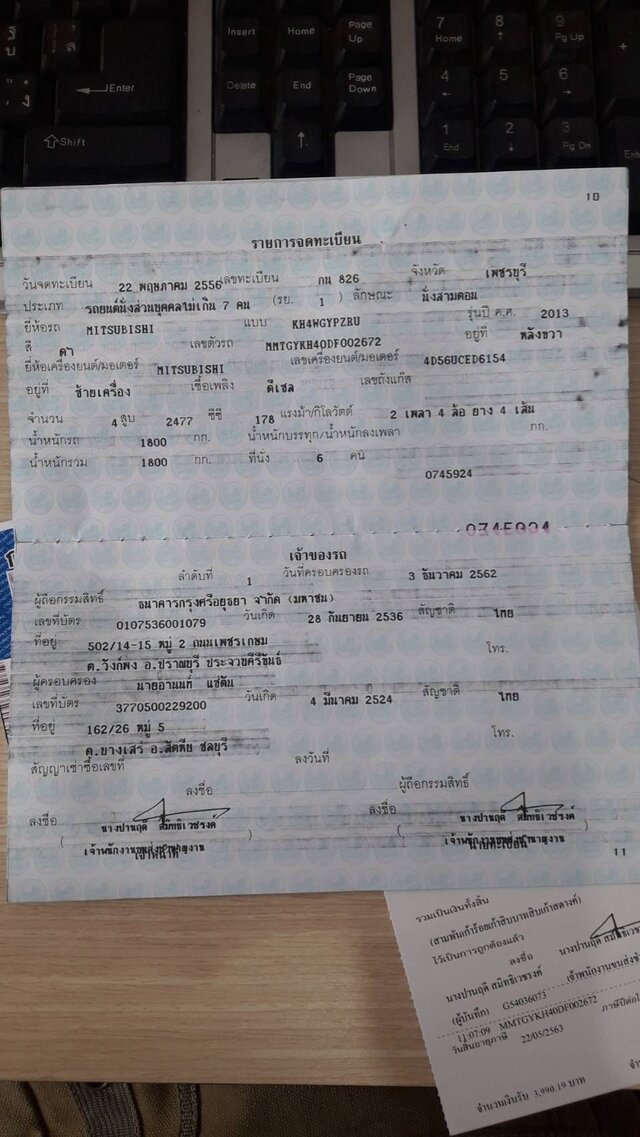 Insert Home Page Up
Delete End Page Down
Enter
Shift
7 Home 8 9 Pg Up
4 5 6
1 End 2 3 Pg Dn
10
รายการจดทะเบียน
วันจดทะเบียน 22 พฤษภาคม 2556 เลขทะเบียน กน 826 จังหวัด เพชรบุรี
ประเภท รถยนต์นั่งส่วนบุคคลไม่เกิน 7 คน (รย. 1 ) ลักษณะ นั่งสามตอน
ยี่ห้อรถ MITSUBISHI แบบ KH4WGYPZRU รุ่นปี ค.ศ. 2013
สี ดำ เลขตัวรถ MMTGYKH40DF002672 อยู่ที่ หลังขวา
ยี่ห้อเครื่องยนต์/มอเตอร์ MITSUBISHI เลขเครื่องยนต์/มอเตอร์ 4D56UCED6154
อยู่ที่ ซ้ายเครื่อง เชื้อเพลิง ดีเซล เลขถังแก๊ส
จำนวน 4 สูบ 2477 ซีซี 178 แรงม้า/กิโลวัตต์ 2 เพลา 4 ล้อ ยาง 4 เส้น
น้ำหนักรถ 1800 กก. น้ำหนักบรรทุก/น้ำหนักลงเพลา กก.
น้ำหนักรวม 1800 กก. ที่นั่ง 6 คน
0745924
เจ้าของรถ
ลำดับที่ 1 วันที่ครอบครองรถ 3 ธันวาคม 2562
ผู้ถือกรรมสิทธิ์ ธนาคารกรุงศรีอยุธยา จำกัด (มหาชน)
เลขที่บัตร 0107536001079 วันเกิด 28 กันยายน 2536 สัญชาติ ไทย
ที่อยู่ 502/14-15 หมู่ 2 ถนนเพชรเกษม โทร.
ต.วังก์พง อ.ปราณบุรี ประจวบคีรีขันธ์
ผู้ครอบครอง นายอานนท์ แซ่ตัน
เลขที่บัตร 3770500229200 วันเกิด 4 มีนาคม 2524 สัญชาติ ไทย
ที่อยู่ 162/26 หมู่ 5 โทร.
ต.บางเสร่ อ.สัตหีบ ชลบุรี
สัญญาเช่าซื้อเลขที่ ลงวันที่
ลงชื่อ ผู้ถือกรรมสิทธิ์
ลงชื่อ ลงชื่อ
นางปานฤดี สมิทธิเวชรงค์ นางปานฤดี สมิทธิเวชรงค์
เจ้าพนักงานขนส่งชำนาญงาน เจ้าพนักงานขนส่งชำนาญงาน
เจ้าหน้าที่ นายทะเบียน
11
รวมเป็นเงินทั้งสิ้น
(สามพันเก้าร้อยเก้าสิบบาทสิบเก้าสตางค์)
ไว้เป็นการถูกต้องแล้ว
ลงชื่อ นางปานฤดี สมิทธิเวชร
นางปานฤดี สมิทธิเวชรงค์ เจ้าพนักงานขนส่งชำ
(ผู้บันทึก) G54036073
11:07:09 MMTGYKH40DF002672 ภาษีปีต่อไ
วันสิ้นอายุภาษี 22/05/2563
จำนวนเงินรับ 3,990.19 บาท